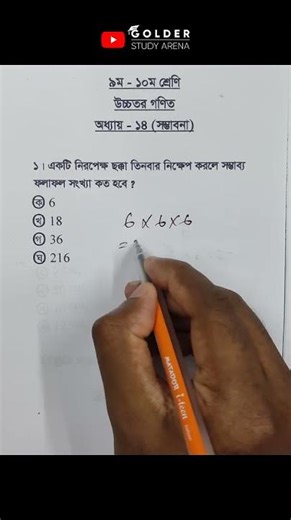 GOLDER
STUDY ARENA
৯ম - ১০ম শ্রেণি
উচ্চতর গণিত
অধ্যায় - ১৪ (সম্ভাবনা)
১। একটি নিরপেক্ষ ছক্কা তিনবার নিক্ষেপ করলে সম্ভাব্য
ফলাফল সংখ্যা কত হবে ?
ক 6
খ 18
গ 36
ঘ 216
6 × 6 × 6
=
MATADOR i-teen